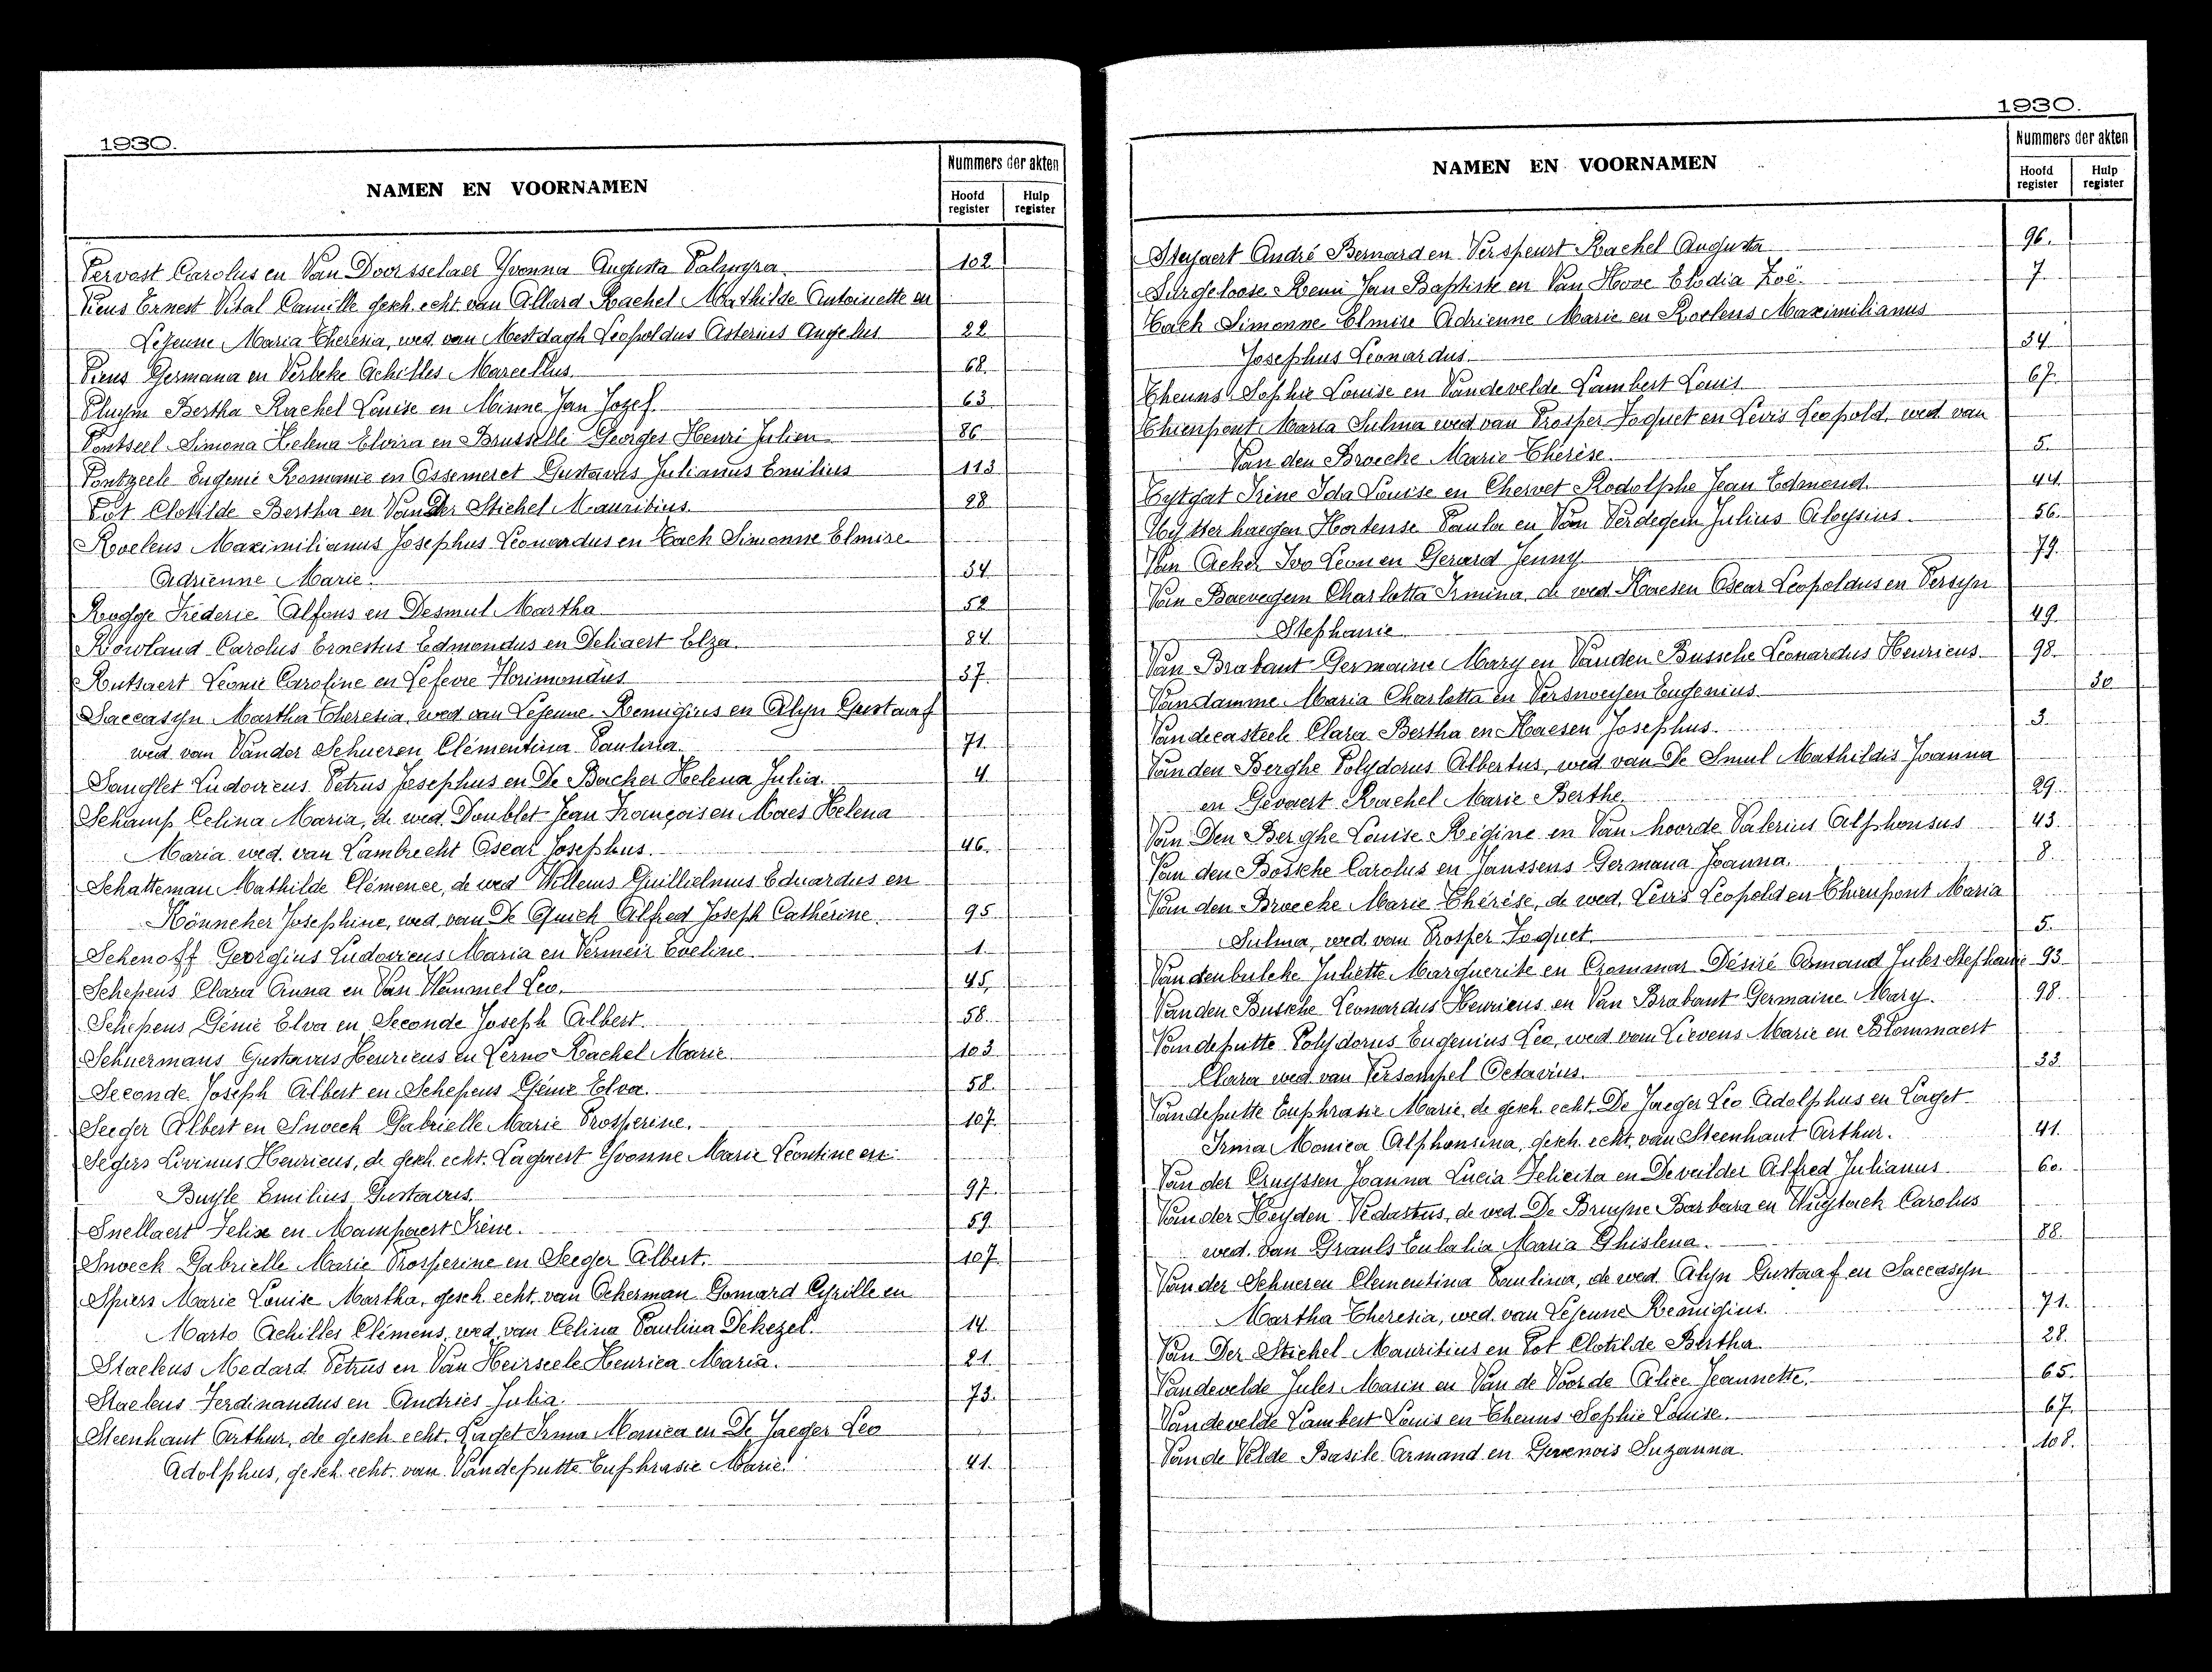 1930.
NAMEN EN VOORNAMEN
Nummers der akten
Hoofd register
Hulp register
Pervost Carolus en Van Doorsselaer Yvonna Augusta Palmyra. 102
Piens Ernest Vital Camille gesch. echt. van Allard Rachel Mathilde Antoinette en
Lejeune Maria Theresia, wed. van Mestdagh Leopoldus Asterius Angelus 22
Piens Germana en Verbeke Achilles Marcellus 68.
Pluym Bertha Rachel Louise en Minne Jan Jozef. 63
Pontseel Simona Helena Elvira en Brusselle Georges Henri Julien 86
Pontzeele Eugenie Romanie en Ossemeret Gustavus Julianus Emilius 113
Pot Clotilde Bertha en Van Der Stichel Mauritius. 28
Roelens Maximilianus Josephus Leonardus en Tack Simonne Elmire
Adrienne Marie. 34
Rogge Fréderic Alfons en Desmul Martha 52
Rowland Carolus Ernestus Edmondus en Deliaert Elza. 84
Rutsaert Leonie Caroline en Lefevre Florimondus 37
Saccasyn Martha Theresia, wed van Lejeune Remigius en Alyn Gustaaf
wed van Vander Schueren Clémentina Paulina. 71
Sanglet Ludovicus Petrus Josephus en De Backer Helena Julia. 4
Schamp Celina Maria, de wed. Doublet Jean François en Maes Helena
Maria wed. van Lambrecht Oscar Josephus. 46.
Schatteman Mathilde Clémence, de wed Willems Guillielmus Eduardus en
Könneker Josephine, wed van De Quick Alfred Joseph Cathérine. 95
Schenoff Georgius Ludovicus Maria en Vermeir Eveline 1
Schepens Clara Anna en Van Wemmel Leo. 45.
Schepens Génie Elva en Seconde Joseph Albert. 58
Schuermans Gustavus Henricus en Lerno Rachel Marie. 103
Seconde Joseph Albert en Schepens Génie Elva. 58.
Seeger Albert en Snoeck Gabrielle Marie Prosperine. 107
Segers Livinus Henricus, de gesch. echt. Lagaert Yvonne Marie Leontine en
Buyle Emilius Gustavus. 97
Snellaert Felix en Mampaert Irène. 59
Snoeck Gabrielle Marie Prosperine en Seeger Albert. 107
Spiers Marie Louise Martha, gesch. echt. van Ockerman Gomard Cyrille en
Marto Achilles Clémens, wed. van Celina Paulina Dekezel. 14
Staelens Medard Petrus en Van Heirseele Henrica Maria. 21
Staelens Ferdinandus en Andries Julia. 73.
Steenhaut Arthur, de gesch. echt. Laget Irma Monica en De Jaeger Leo
Adolphus, gesch. echt. van Vandeputte Euphrasie Marie. 41
1930.
NAMEN EN VOORNAMEN
Nummers der akten
Hoofd register
Hulp register
Steyaert André Bernard en Verspeurt Rachel Augusta 96.
Surgeloose Remi Jan Baptiste en Van Hove Elodia Zoë. 7
Tack Simonne Elmire Adrienne Marie en Roelens Maximilianus
Josephus Leonardus 34
Theuns Sophie Louise en Vandevelde Lambert Louis 67
Thienpont Maria Sulma wed van Prosper Joquet en Levis Leopold, wed. van
Van den Broecke Marie Thérèse. 5.
Tytgat Irène Ida Louise en Chervet Rodolphe Jean Edmond. 44
Uytterhaegen Hortense Paula en Van Verdegem Julius Aloysius 56.
Van Acker Ivo Leon en Gerard Jenny 79
Van Bavegem Charlotta Irmina, de wed. Haesen Oscar Leopoldus en Persyn
Stephanie 49
Van Brabant Germaine Mary en Vanden Bussche Leonardus Henricus 98
Vandamme Maria Charlotta en Versweyen Eugenius 30
Vandecasteele Clara Bertha en Haesen Josephus. 3
Vanden Berghe Polydorus Albertus, wed van De Smul Mathildis Joanna
en Gevaert Rachel Marie Berthe. 29
Van Den Berghe Louise Régine en Van hoorde Valerius Alphonsus 43
Van den Bossche Carolus en Janssens Germana Joanna. 8
Van den Broecke Marie Thérèse, de wed. Levis Leopold en Thienpont Maria
Sulma, wed. van Prosper Joquet. 5.
Vandenbulcke Juliette Marguerite en Crommar Désiré Armand Jules Stephanie 93
Vanden Bussche Leonardus Henricus en Van Brabant Germaine Mary. 98.
Vandeputte Polydorus Eugenius Leo, wed van Lievens Marie en Blommaert
Clara wed van Versompel Octavius. 33
Vandeputte Euphrasie Marie, de gesch. echt. De Jaeger Leo Adolphus en Laget
Irma Monica Alphonsina, gesch. echt. van Steenhaut Arthur. 41
Van der Cruyssen Joanna Lucia Felicita en Deveilder Alfred Julianus 60.
Van der Heyden Vedastus, de wed. De Bruyne Barbara en Wuytack Carolus
wed. van Grauls Eulalia Maria Ghislena. 88.
Van der Schueren Clementina Paulina, de wed. Alyn Gustaaf en Saccasyn
Martha Theresia, wed. van Lejeune Remigius. 71
Van Der Stichel Mauritius en Pot Clotilde Bertha 28
Vandevelde Jules Marin en Van de Voorde Alice Jeannette. 65
Vandevelde Lambert Louis en Theuns Sophie Louise. 67.
Van de Velde Basile Armand en Gavenois Suzanna. 108.